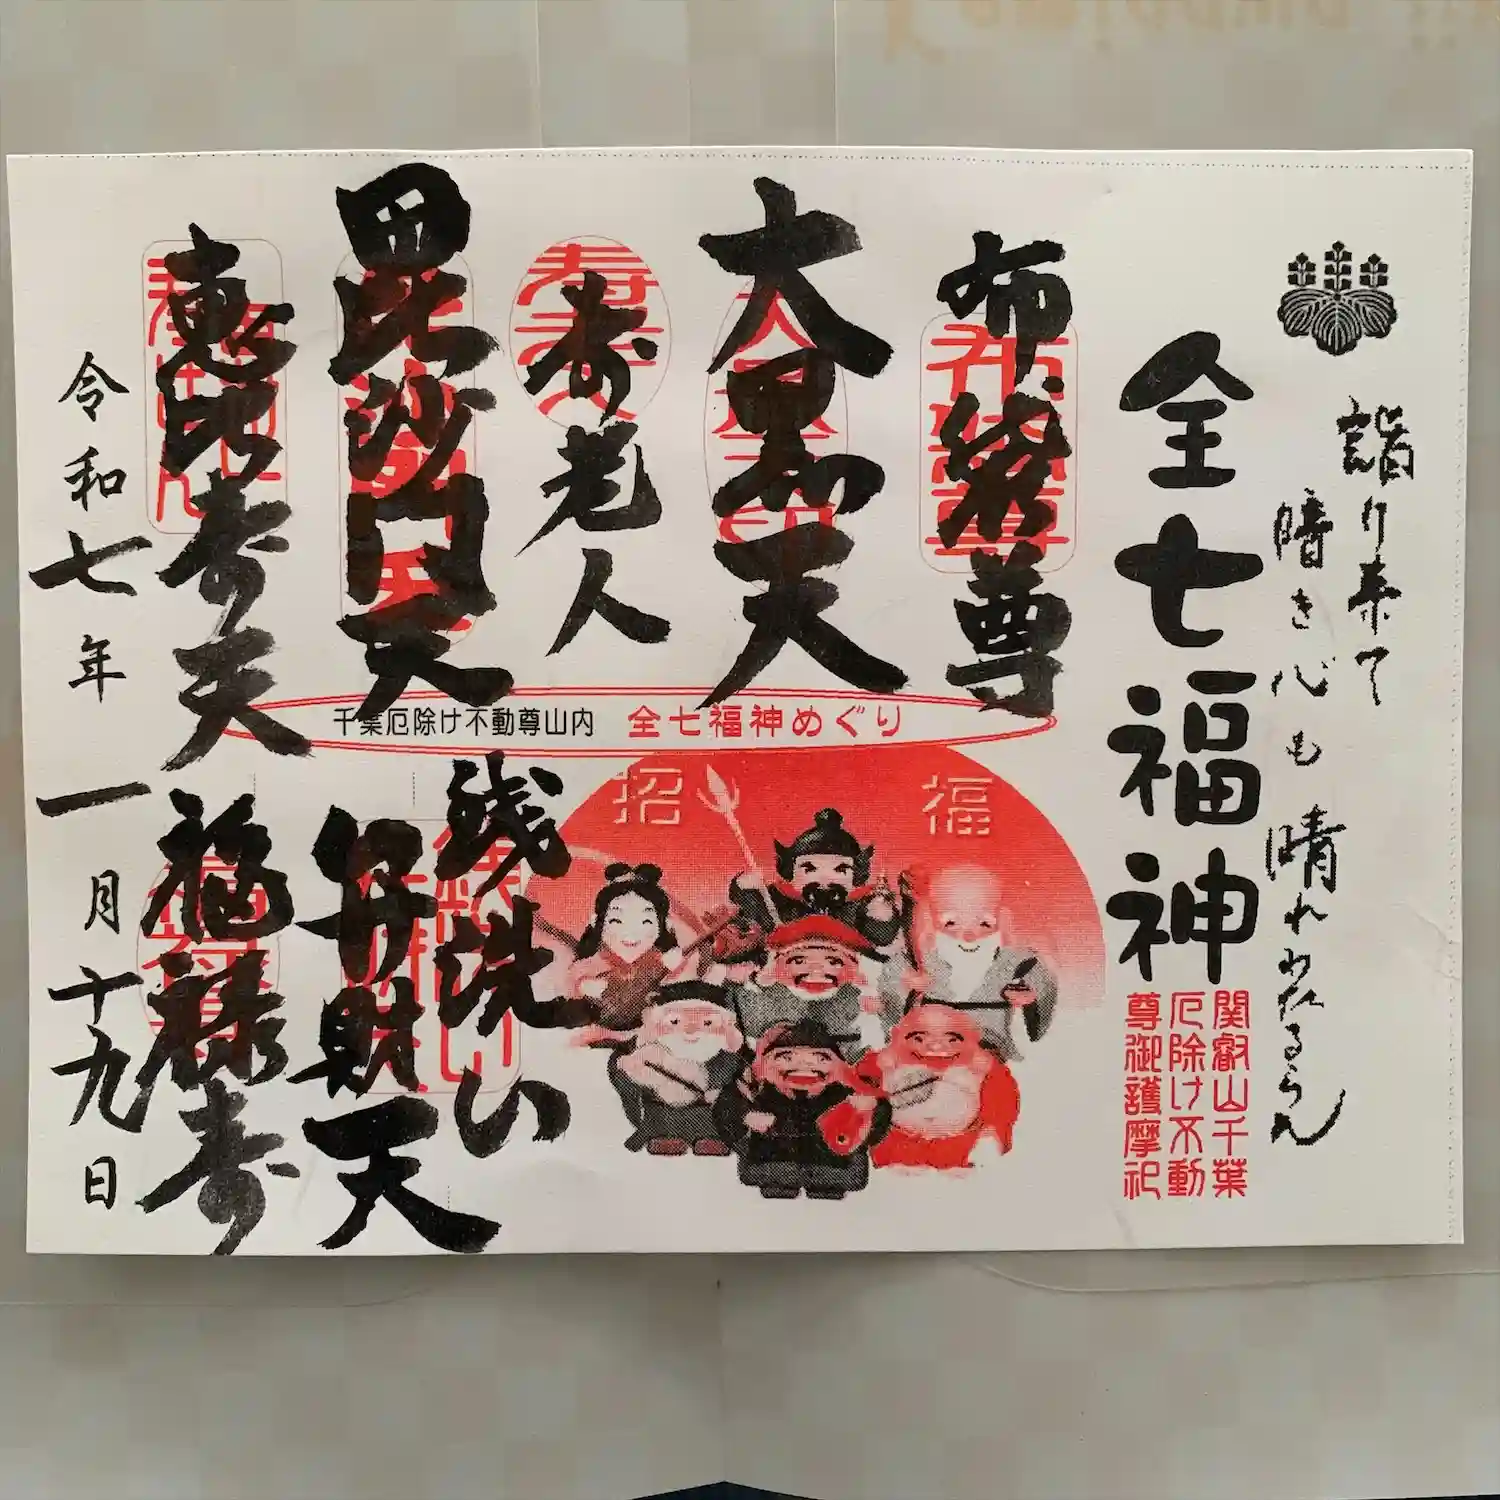 詣り来て
暗き心も
晴れわたるらん
全七福神
関叡山千葉
厄除け不動
尊御護摩祀
布袋尊
大黒天
寿老人
毘沙門天
恵比寿天
千葉厄除け不動尊山内 全七福神めぐり
招 福
銭洗い
弁財天
福禄寿
令和七年一月十九日